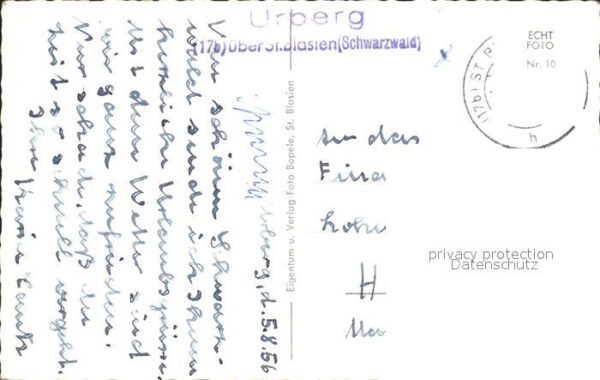 Urberg
(17b) über St. Blasien (Schwarzwald)
ECHT
FOTO
Nr. 10
(17b) ST.
h
Urberg, d. 5.8.56
Vom schönen Schwarz-
wald sende ich Ihnen
herzliche Urlaubsgrüße.
Mit dem Wetter sind
wir ganz zufrieden.
Nur schade, daß die
Zeit so schnell vergeht.
Ihre
Eigentum u. Verlag Foto Bopele, St. Blasien
An das
H
privacy protection
Datenschutz